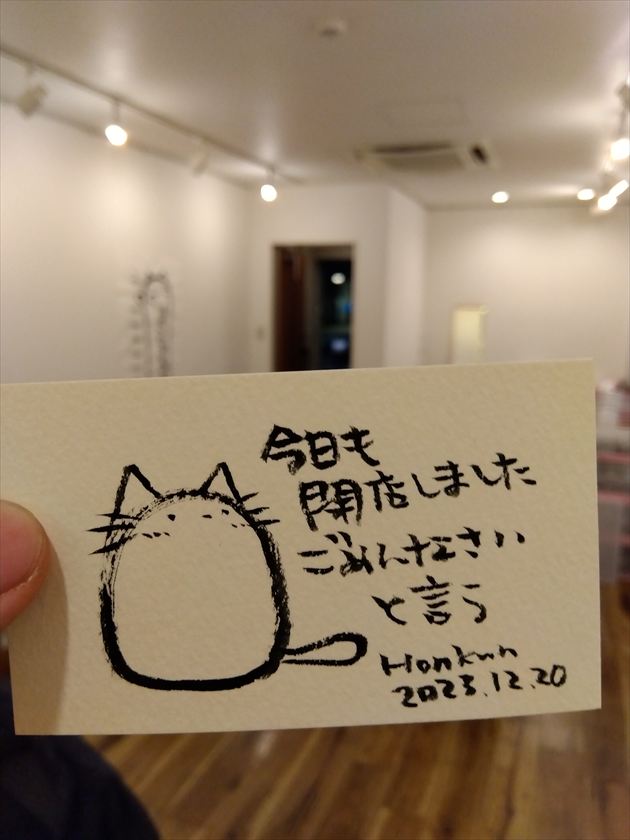 今日も
閉店しました
ごめんなさい
と言う
Honkun
2023.12.20